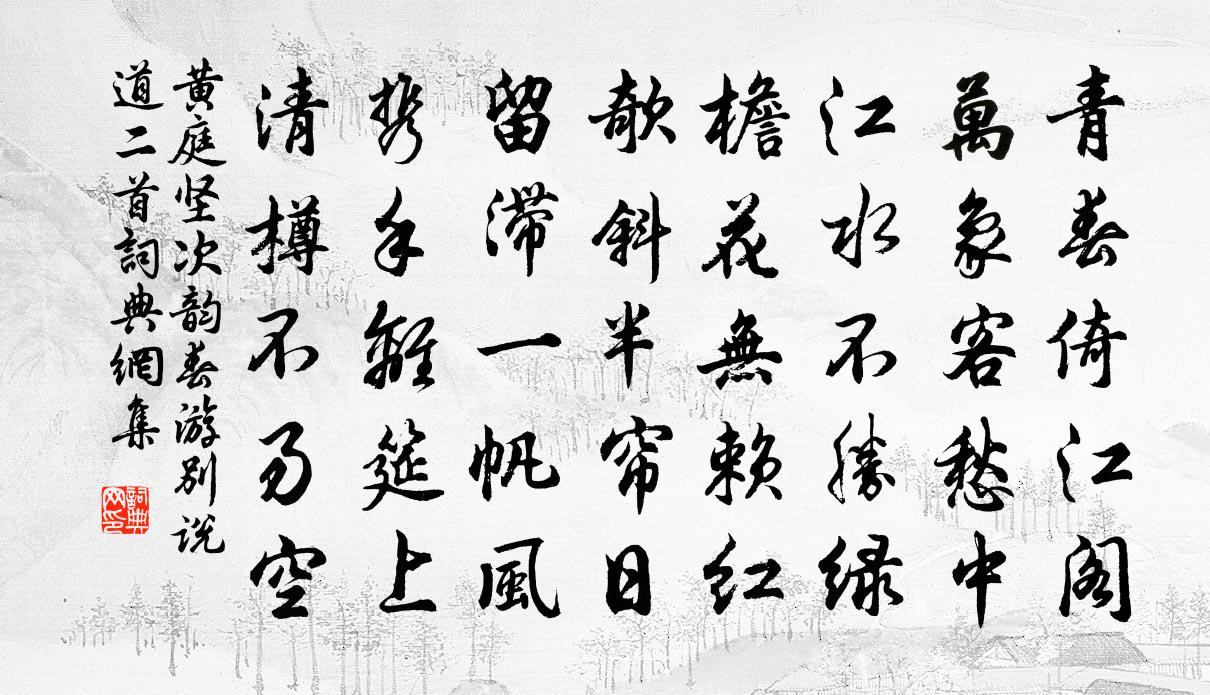 青春倚江阁
萬象客愁中
江水不勝绿
檐花無赖红
欹斜半帘日
留滞一帆風
携手離筵上
清樽不易空
黄庭坚次韵春游别说
道二首詞典網集
詞典
网印